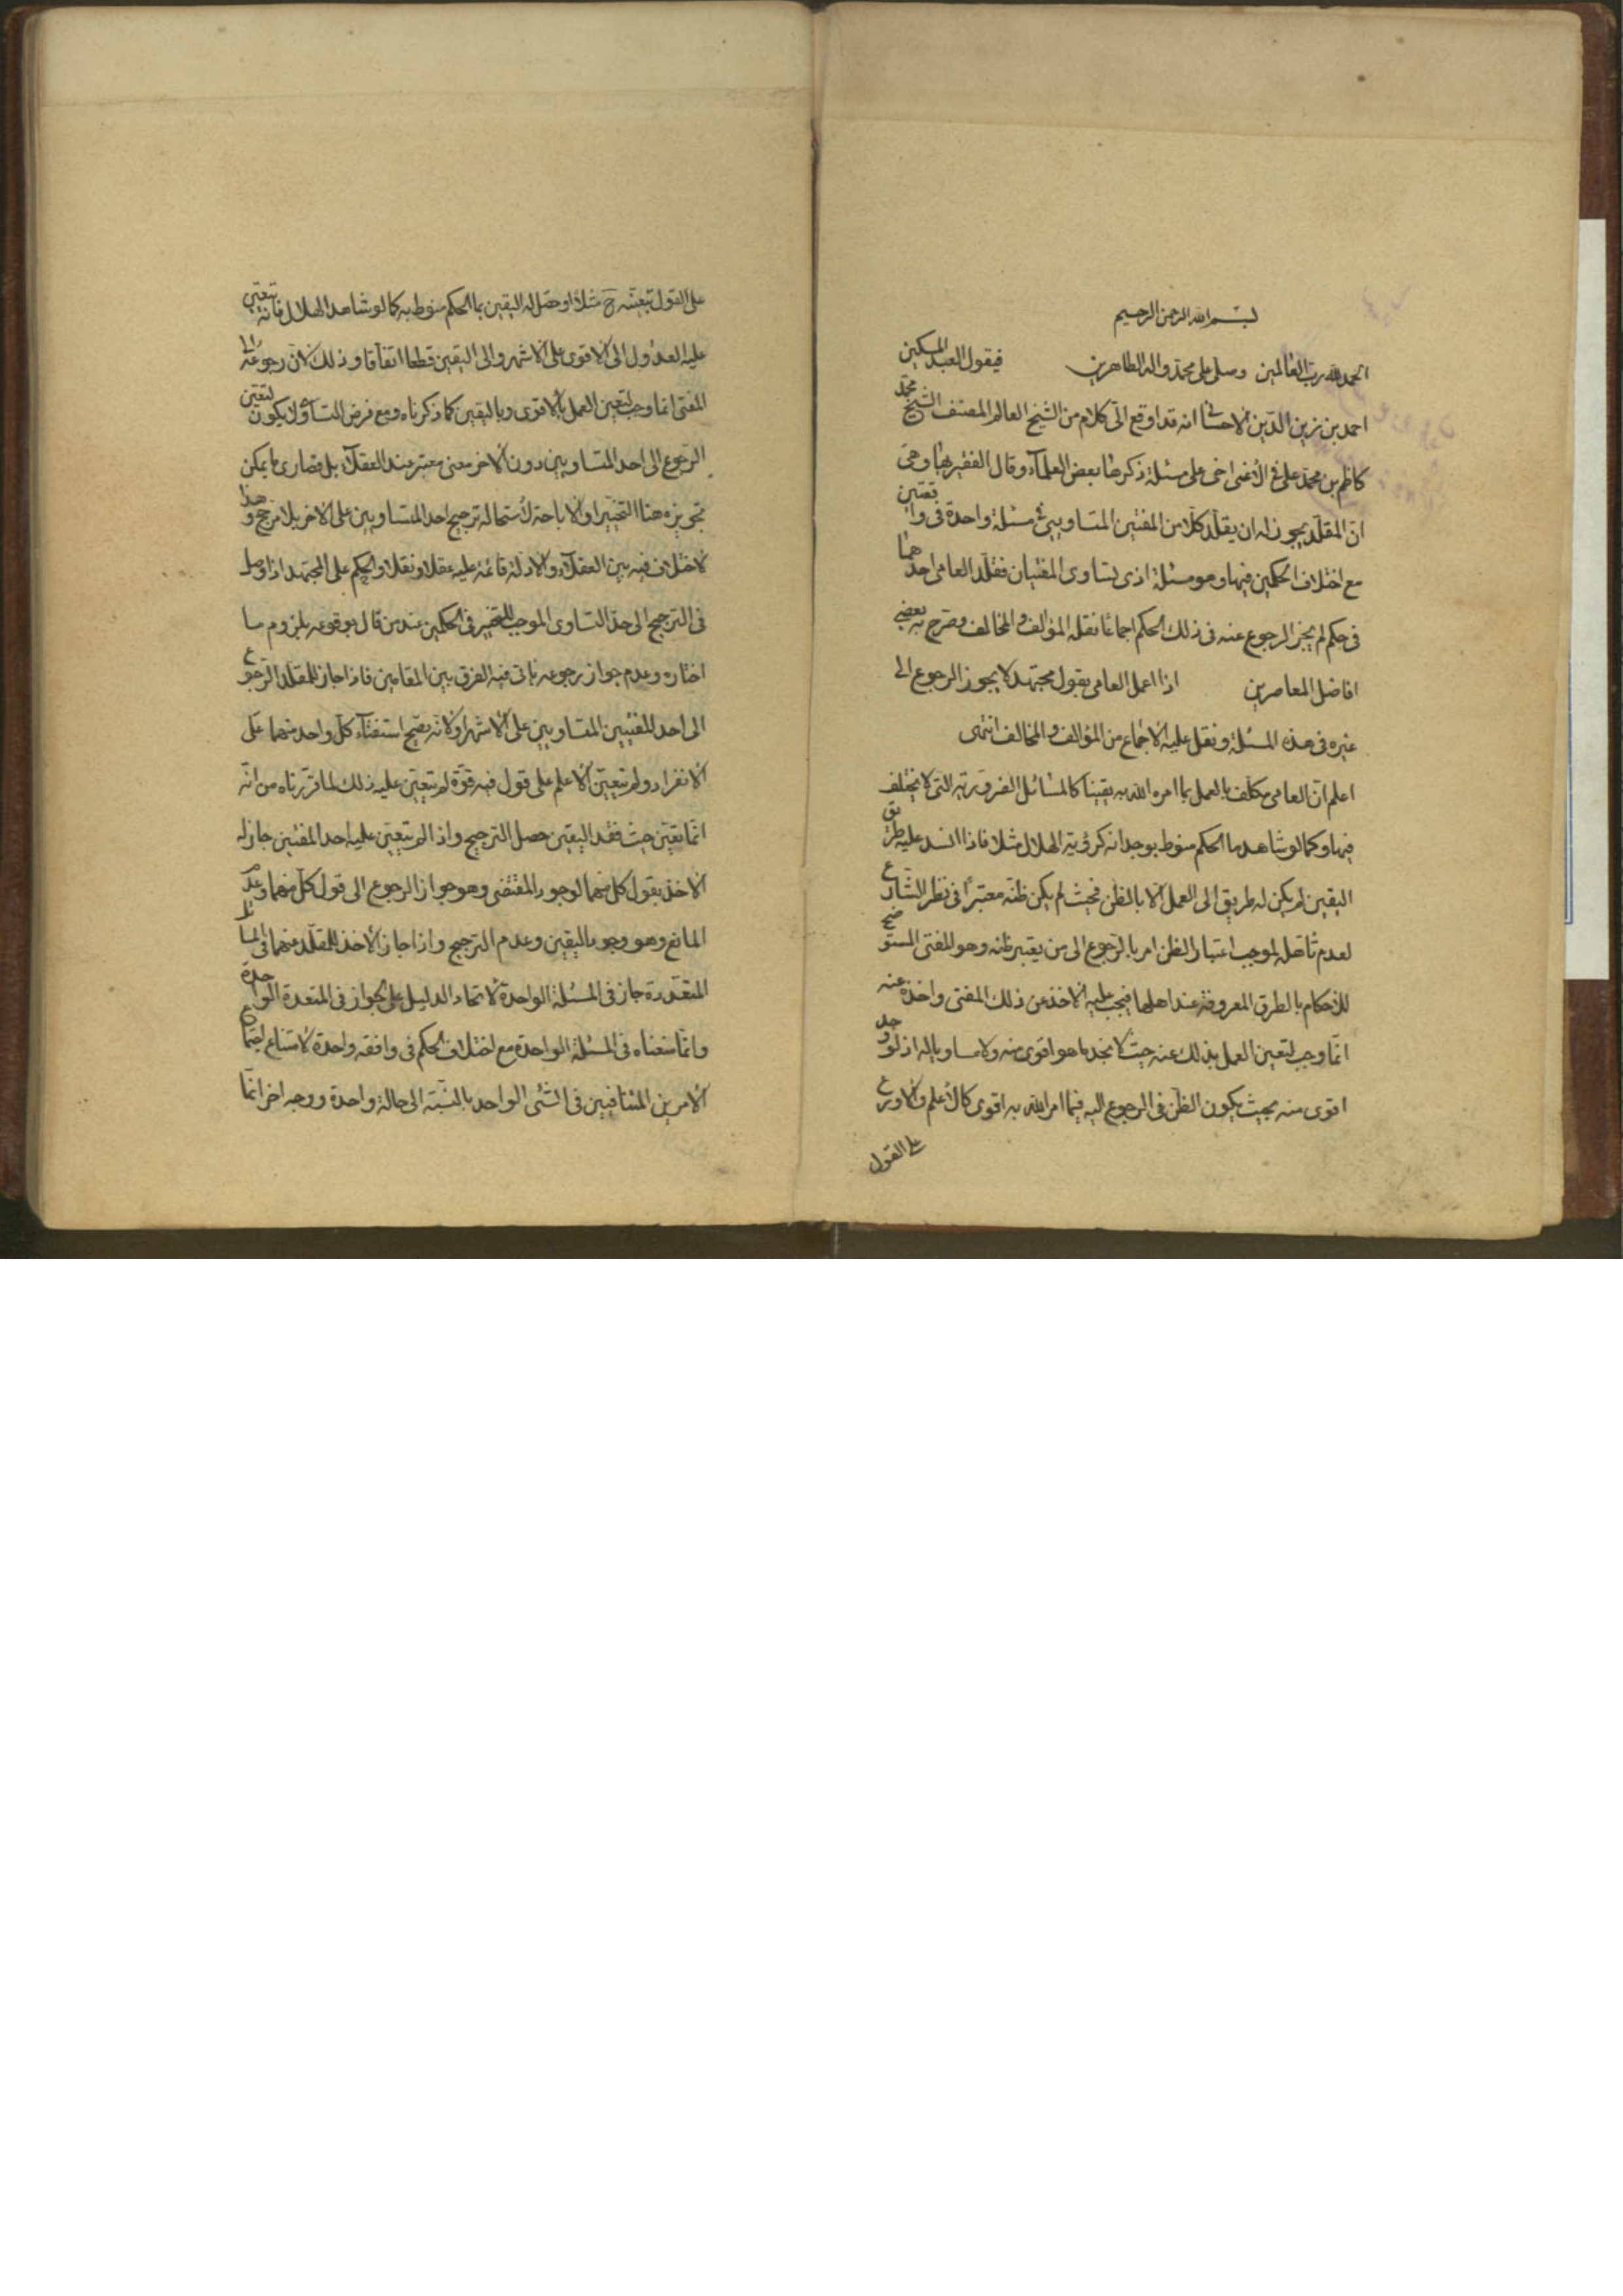 بسم الله الرحمن الرحيم
الحمد لله رب العالمين وصلى على محمد واله الطاهرين فيقول العبد المسكين
احمد بن زين الدين الاحسائى انه قد اوقع الى كلام من الشيخ العالم المصنف الشيخ محمد
كاظم بن محمد على فى على مسئلة ذكرها بعض العلماء وقال الفقير بها وهى
ان المقلد يجوز له ان يقلد كلا من المفتين المتساويين فى مسئلة واحدة فى واقعتين
مع اختلاف الحكمين فيها وهو مسئلة اذى تساوى المفتيان فقلد العامى احدهما
فى حكم لم يجز الرجوع عنه فى ذلك الحكم اجماعا نقله المؤالف والمخالف وصرح به بعض
افاضل المعاصرين اذا اعمل العامى بقول مجتهد لا يجوز الرجوع الى
غيره فى هذه المسئلة ونقل عليه الاجماع من المؤالف والمخالف انتهى
اعلم ان العامى مكلف بالعمل بما امره الله به يقينا كالمسائل الضرورية التى لا يختلف
فيها وكما لو شاهد ما الحكم منوط بوجدانه كرؤية الهلال مثلا فاذا انسد عليه طريق
اليقين لم يكن له طريق الى العمل الا بالظن فحيث لم يكن ظنه معتبرا فى نظر الشارع
لعدم تأهله لموجب اعتبار الظن امر بالرجوع الى من يعتبر ظنه وهو المفتى المستوضح
للاحكام بالطرق المعروفة عند اهلها فيجب عليه الاخذ عن ذلك المفتى واخذه عنه
انما وجب لتعين العمل بذلك عنه حيث لا يجد ما هو اقوى منه ولا مساويا له اذ لو وجد
اقوى منه بحيث يكون الظن فى الرجوع اليه فيما امر الله به اقوى كالاعلم والاورع
على القول
على القول بتعينه ح مثلا او حصل له اليقين بما الحكم منوط به كما لو شاهد الهلال فانه يتعين
عليه العدول الى الاقوى على الاشهر والى اليقين قطعا اتفاقا وذلك لان رجوعه الى
المفتى انما وجب لتعين العمل بالاقوى وباليقين كما ذكرناه ومع فرض التساوى لا يكون لتعين
الرجوع الى احد المتساويين دون الاخر معنى معتبر عند العقلاء بل قصارى ما يمكن
تجويزه هنا التخيير او الاباحة لاستحالة ترجيح احد المتساويين على الاخر بلا مرجح وهذا
لا اختلاف فيه بين العقلاء والادلة قائمة عليه عقلا ونقلا والحكم على المجتهد اذا وصل
فى الترجيح الى حد التساوى الموجب للتخيير فى الحكمين عند من قال بوقوعه بلزوم ما
اختاره وعدم جواز رجوعه ياتى فيه الفرق بين المقامين فاذا جاز للمقلد الرجوع
الى احد المفتيين المتساويين على الاشهر ولانه يصح استفتاء كل واحد منهما على
الانفراد ولم يتعين الاعلم على قول فيه قوة لم يتعين عليه ذلك لما قررناه من انه
انما تعين حيث فقد اليقين حصل الترجيح واذا لم يتعين عليه احد المفتين جاز له
الاخذ بقول كل منهما لوجود المقتضى وهو جواز الرجوع الى قول كل منهما وعدم
المانع وهو وجود اليقين وعدم الترجيح واذا جاز الاخذ للمقلد منهما فى المسائل
المتعددة جاز فى المسئلة الواحدة لاتحاد الدليل على الجواز فى المتعددة الواحدة
وانما منعناه فى المسئلة الواحدة مع اختلاف الحكم فى واقعة واحدة لامتناع اجتماع
الامرين المتنافيين فى الشئ الواحد بالنسبة الى حالة واحدة ووجه اخر انما